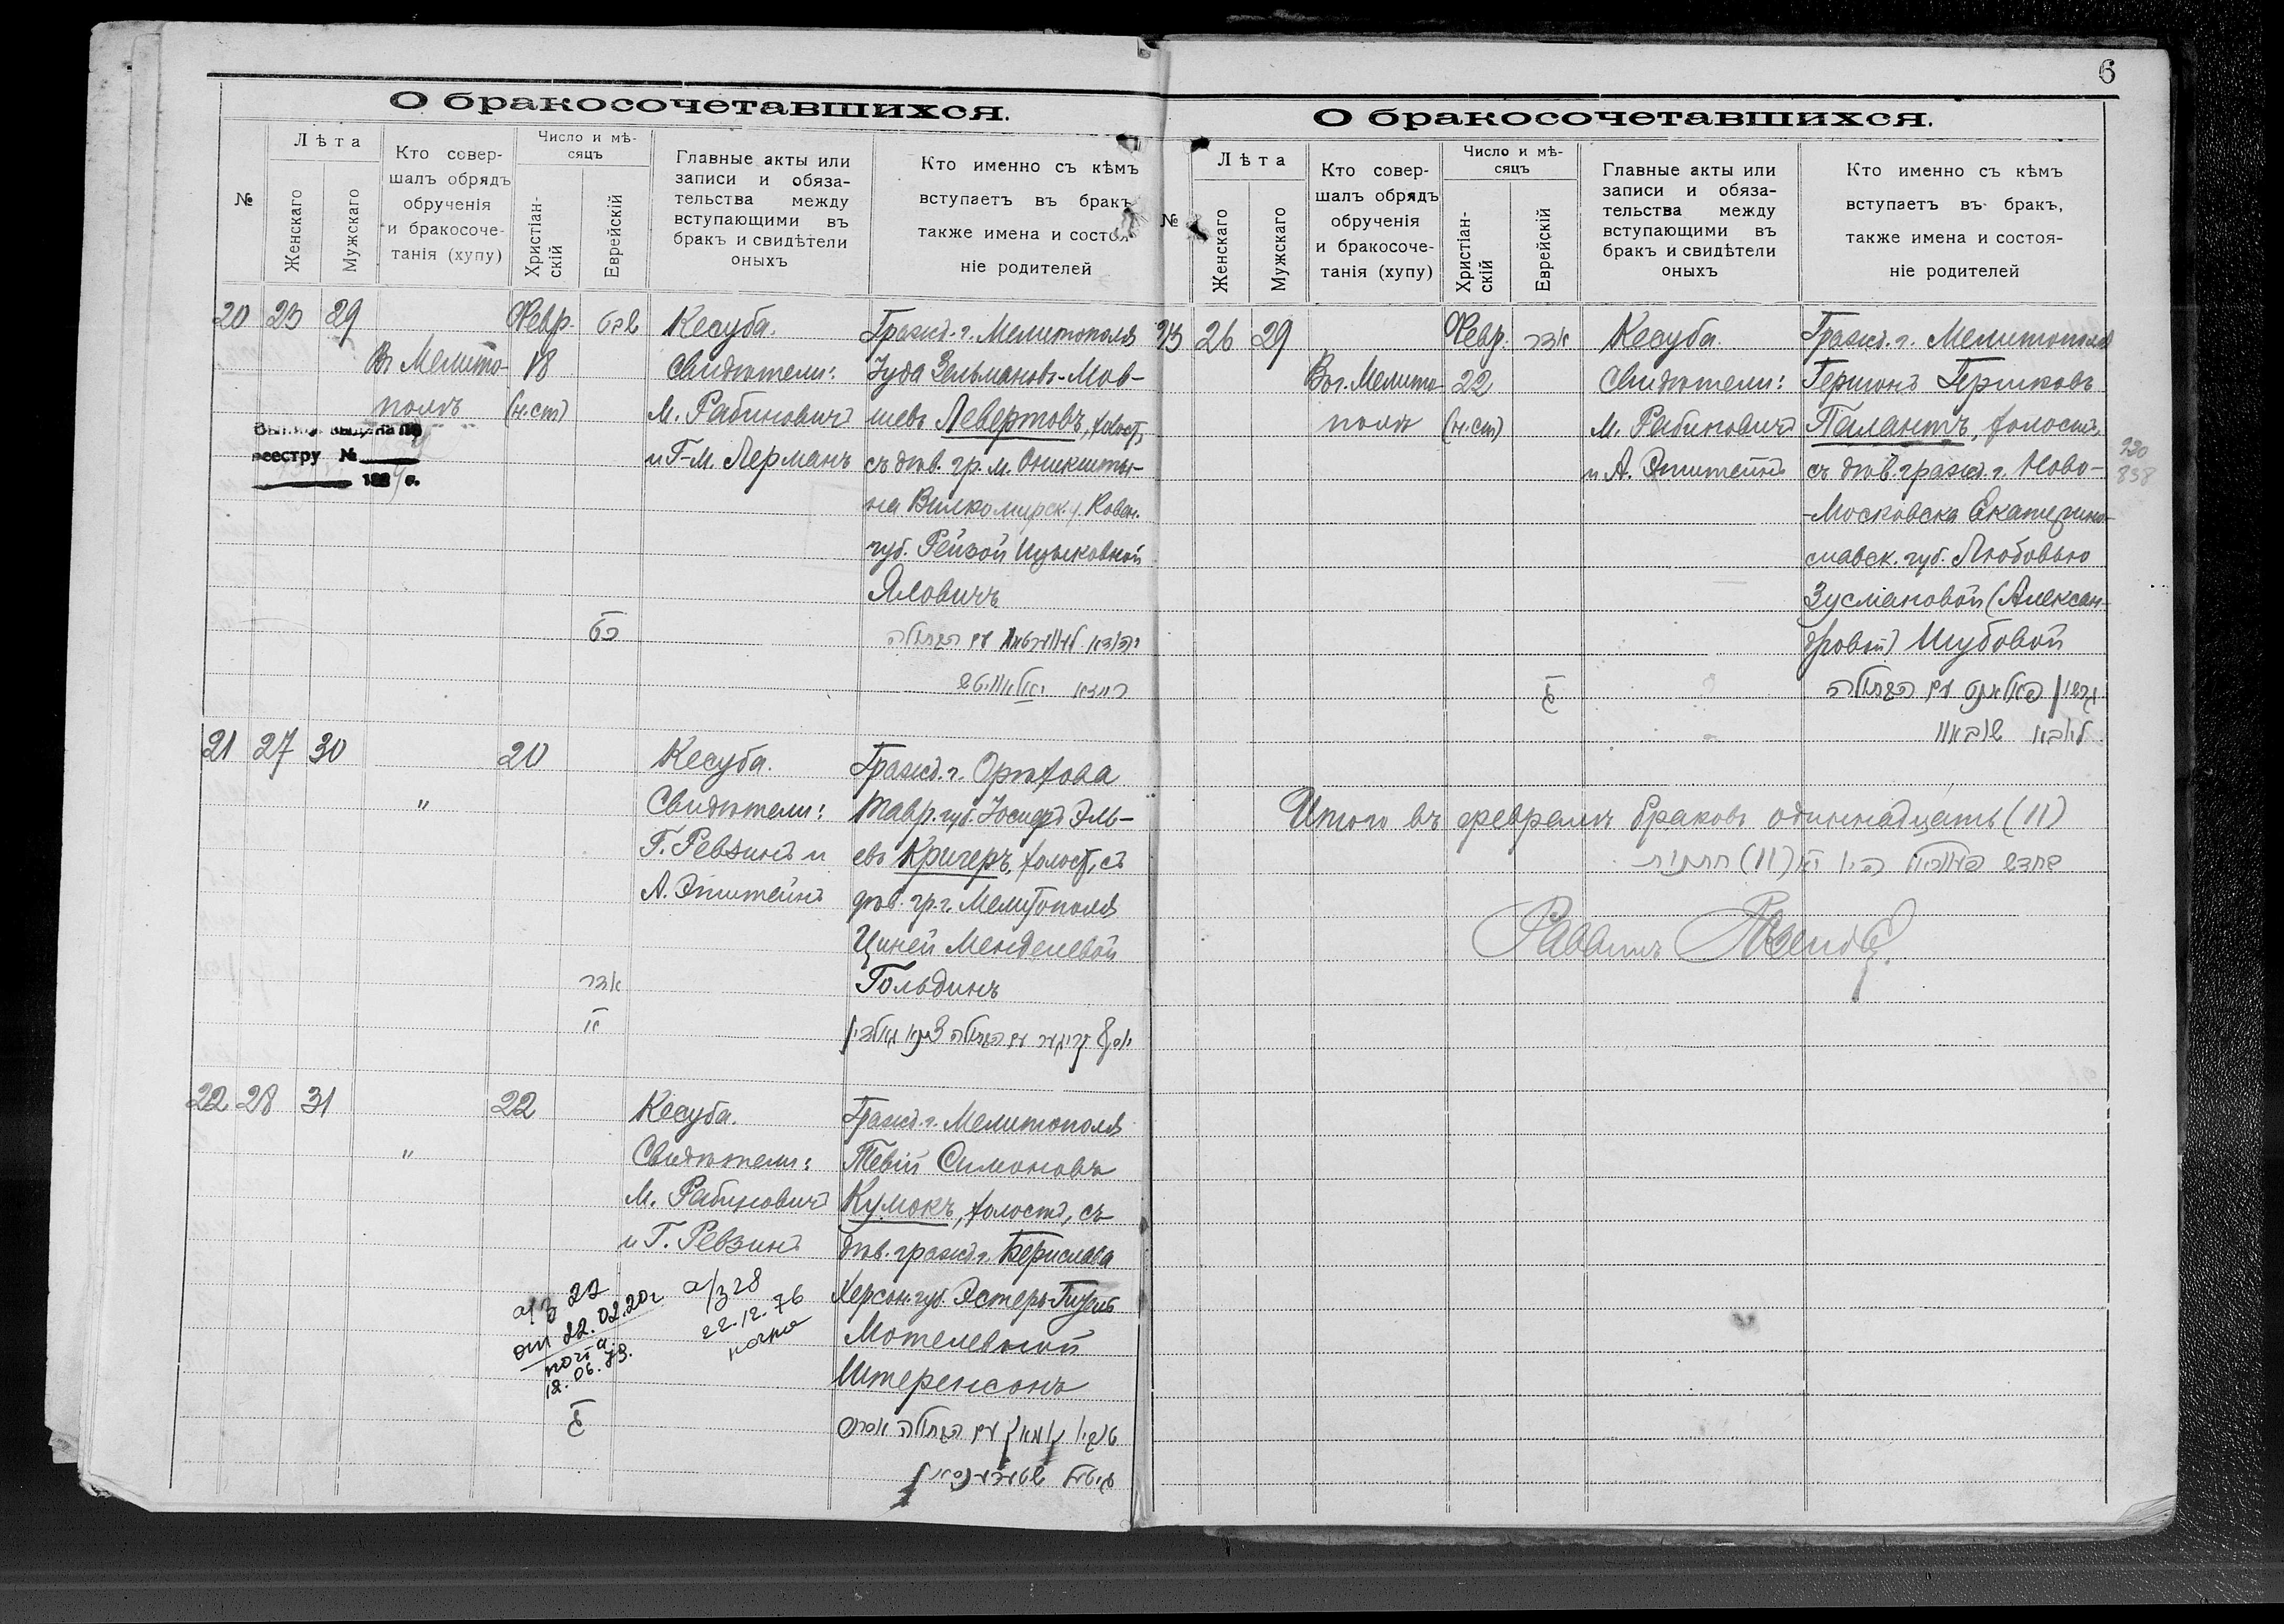 6
О бракосочетавшихся.
№
Лѣта
Женскаго
Мужскаго
Кто совер-
шалъ обрядъ
обрученія
и бракосоче-
танія (хупу)
Число и мѣ-
сяцъ
Христіан-
скій
Еврейскій
Главные акты или
записи и обяза-
тельства между
вступающими въ
бракъ и свидѣтели
оныхъ
Кто именно съ кѣмъ
вступаетъ въ бракъ,
также имена и состоя-
ніе родителей
20 23 29
Въ Мелито-
полѣ
Февр.
18
(н.ст)
Кесуба.
Свидѣтели:
М. Рабиновичъ
и Г-М. Лерманъ
Гражд. г. Мелитополя
Іуда Зельмановъ-Мов-
шевъ Левертовъ, холост,
съ дѣв. гр. м. Оникшты-
на Вилкомирск. у. Ковен.
губ. Рейзой Ицыковной
Яловичъ
כט
выдана по
реестру №
21 27 30
"
20
Кесуба.
Свидѣтели:
Г. Ревзинъ и
А. Эпштейнъ
Гражд. г. Орѣхова
Тавр. губ. Іосифъ Эль-
евъ Кригеръ, холост, съ
дѣв. гр. г. Мелитополя
Циней Менделевой
Гольдинъ
אדר
א
22 28 31
"
22
Кесуба.
Свидѣтели:
М. Рабиновичъ
и Г. Ревзинъ
Гражд. г. Мелитополя
Тевій Симоновъ
Кумокъ, холостъ, съ
дѣв. гражд. г. Берислава
Херсон. губ. Эстеръ-
Мотелевной
Штеренсонъ
ג
а/з 22
от 22.02.20г
почта
12.06.73.
а/з 28
22.12.76
О бракосочетавшихся.
№
Лѣта
Женскаго
Мужскаго
Кто совер-
шалъ обрядъ
обрученія
и бракосоче-
танія (хупу)
Число и мѣ-
сяцъ
Христіан-
скій
Еврейскій
Главные акты или
записи и обяза-
тельства между
вступающими въ
бракъ и свидѣтели
оныхъ
Кто именно съ кѣмъ
вступаетъ въ бракъ,
также имена и состоя-
ніе родителей
23 26 29
Въ г. Мелито-
полѣ
Февр.
22
(н.ст)
אדר
Кесуба.
Свидѣтели:
М. Рабиновичъ
и А. Эпштейнъ
Гражд. г. Мелитополя
Гершонъ Гершковъ
Палантъ, холостъ,
съ дѣв. гражд. г. Ново-
-Московска Екатерино-
славск. губ. Любовью
Зусмановой (Алексан-
дровой) Шубовой
ג
גרשון פאלאנט עם הבתולה
ליובא שובאוו
838
Итого въ февралѣ браковъ одиннадцать (11)
Раввинъ